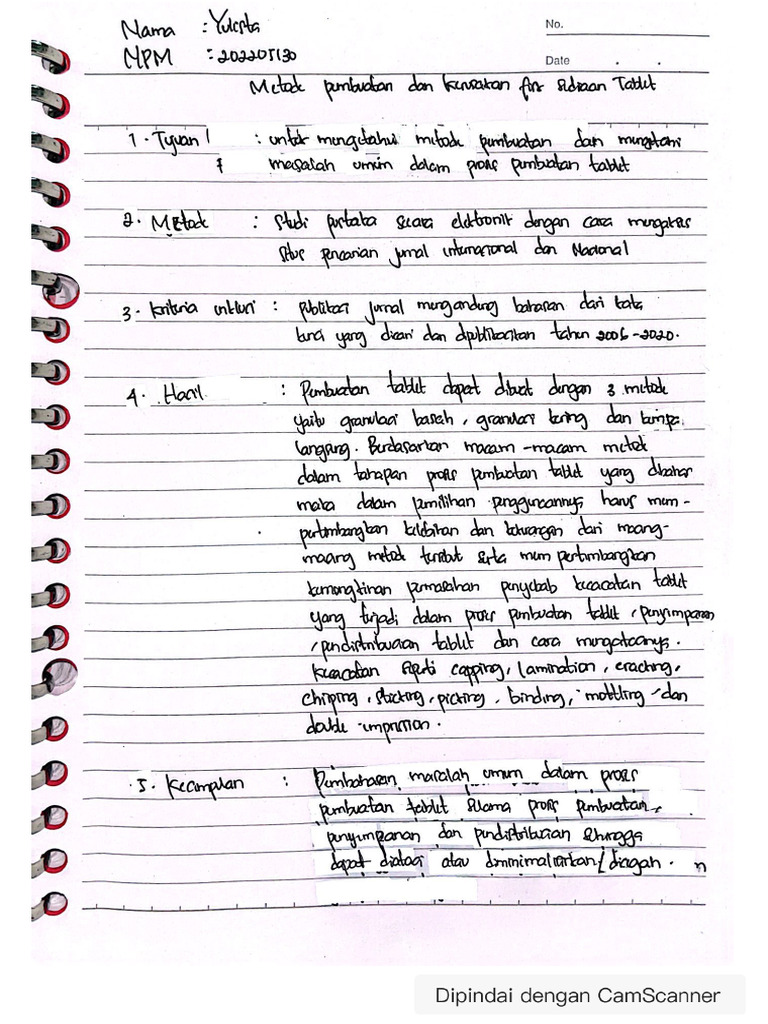 Nama : Yulista
No.
NPM : 202205130
Date . .
Metode pembuatan dan kerusakan fisik sediaan Tablet
1. Tujuan : untuk mengetahui metode pembuatan dan mengatasi
masalah umum dalam proses pembuatan tablet
2. Metode : Studi pustaka secara elektronik dengan cara mengakses
situs pencarian jurnal internasional dan Nasional
3. Kriteria inklusi : publikasi jurnal mengandung bahasan dari kata
kunci yang dicari dan dipublikasikan tahun 2006-2020.
4. Hasil : Pembuatan tablet dapat dibuat dengan 3 metode
yaitu granulasi basah, granulasi kering dan kempa
langsung. Berdasarkan macam-macam metode
dalam tahapan proses pembuatan tablet yang dibahas
maka dalam pemilihan penggunaannya harus mem-
pertimbangkan kelebihan dan kekurangan dari masing-
masing metode tersebut serta mempertimbangkan
kemungkinan permasalahan penyebab kecacatan tablet
yang terjadi dalam proses pembuatan tablet, penyimpanan
, pendistribusian tablet dan cara mengatasinya.
Kecacatan seperti capping, lamination, cracking,
chipping, sticking, picking, binding, mottling dan
double impression.
5. Kesimpulan : Pembahasan masalah umum dalam proses
pembuatan tablet selama proses pembuatan,
penyimpanan dan pendistribusian sehingga
dapat diatasi atau diminimalisirkan/dicegah.
Dipindai dengan CamScanner